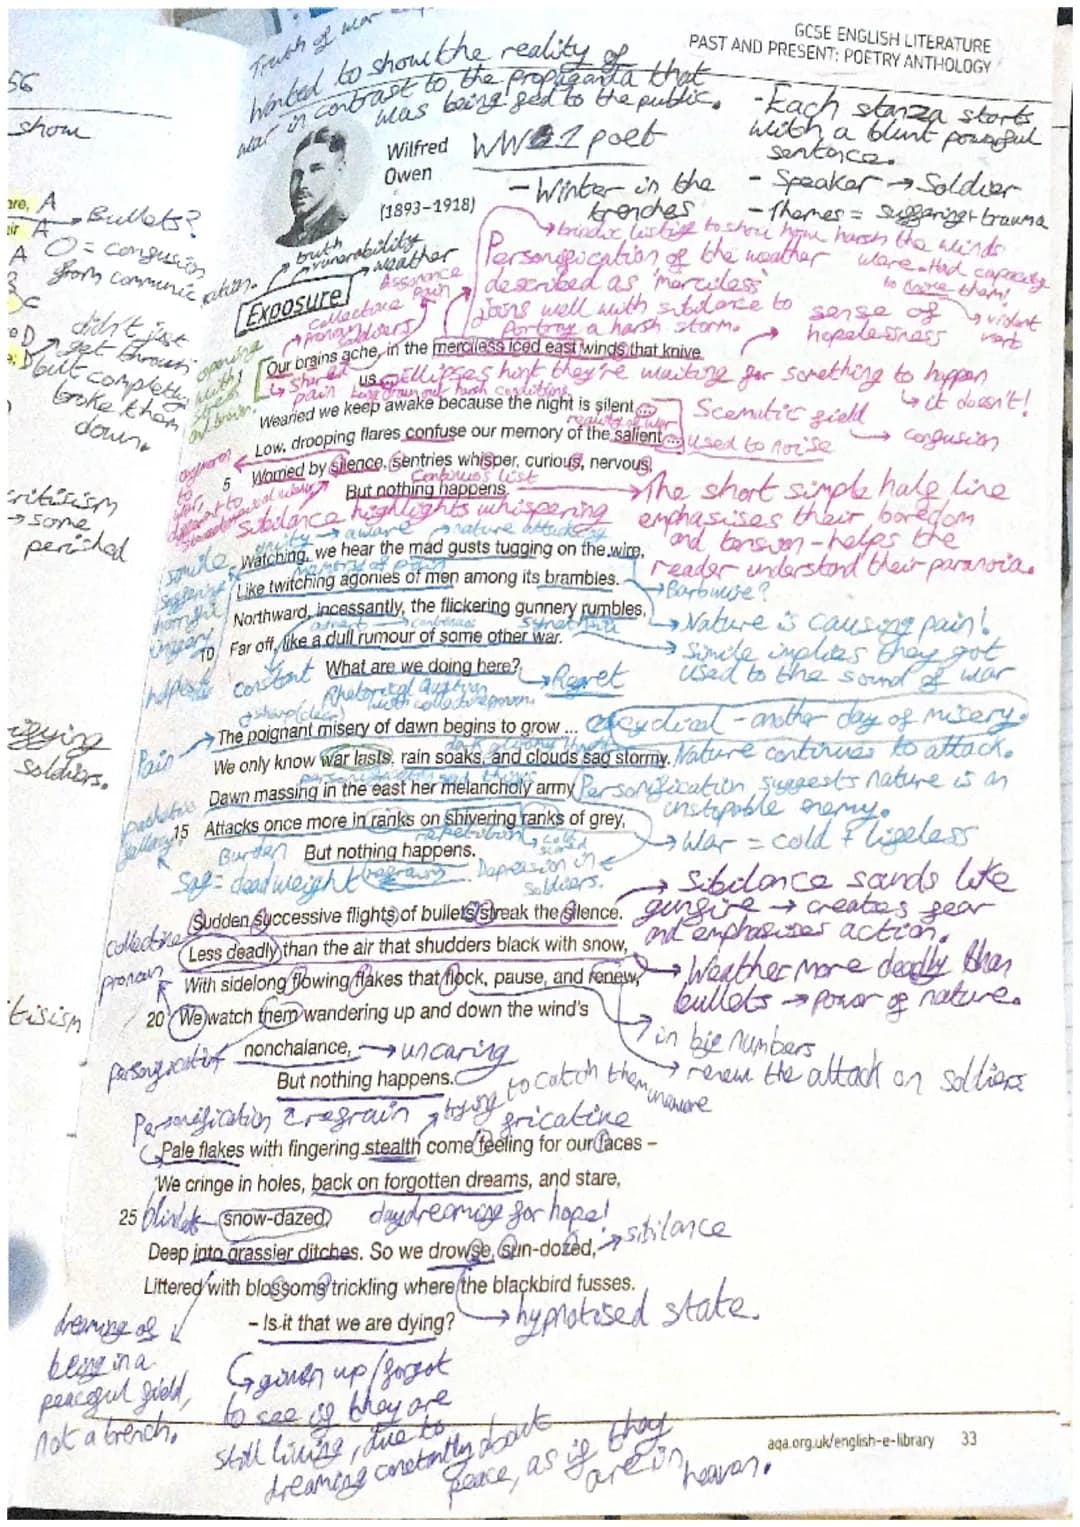 GCSE ENGLISH LITERATURE
PAST AND PRESENT: POETRY ANTHOLOGY
Truth of war
Wanted to show the reality of
war in contrast to the propaganda that
was being fed to the public.
Wilfred
Owen
(1893–1918)
WW1 poet
- Winter in the
trenches
- Each stanza starts
with a blunt powerful
sentence.
- Speaker → Soldier
- Themes = suffering + trauma
56
show
A → Bullets?
A
A O = confusion
from communication.
C
D didn't just
get through
but completely
broke them
down.
critisism
→ some
perished
soldiers.
tisism
truth
vunerability
weather
Exposure
Assonance
pain
Collective
pronoun
soldiers
to show how harsh the winds
were. Had capacity
to them!
violent
verb
Personification of the weather
described as 'merciless'
joins well with sibilance to
Portray a harsh storm.
sense of
hopelessness
opening
with
Our brains ache, in the merciless iced east winds that knive
us ...
Shared
pain
Ellipses hint they're waiting for something to happen
↳ it doesn't!
Wearied we keep awake because the night is silent ...
reality of war
Low, drooping flares confuse our memory of the salient ...
Semantic field
→ confusion
used to noise
5 Worried by silence, sentries whisper, curious, nervous,
But nothing happens.
Continuous list
Sibilance highlights whispering
→ The short simple half line
emphasises their boredom
and tension - helps the
reader understand their paranoia.
unity → aware → nature attacking
simile
Watching, we hear the mad gusts tugging on the wire,
Like twitching agonies of men among its brambles.
→ Barbwire?
Northward, incessantly, the flickering gunnery rumbles,
→ Nature is causing pain!
10 Far off, like a dull rumour of some other war.
→ Simile implies they got
used to the sound of war
What are we doing here?
→ Regret
constant
Rhetorical Question
with collective pronoun.
sharp (clear)
Pain
The poignant misery of dawn begins to grow ...
cyclical - another day of misery.
We only know war lasts, rain soaks, and clouds sag stormy.
Nature continues to attack.
Dawn massing in the east her melancholy army
Personification suggests nature is an
unstopable enemy.
pathetic
fallacy
15 Attacks once more in ranks on shivering ranks of grey,
repetition → cold
→ War = cold + lifeless
Burden
But nothing happens.
Sag = dead weight
refrain
Depression in
soldiers.
Sudden successive flights of bullets streak the silence.
→ Sibilance sands like
gunfire → creates fear
and emphasises action.
collective
pronoun
Less deadly than the air that shudders black with snow,
→ Weather more deadly than
bullets → power of nature.
With sidelong flowing flakes that flock, pause, and renew,
20 We watch them wandering up and down the wind's
→ in big numbers
→ renew the attack on soldiers
personification
nonchalance,
→ uncaring
But nothing happens.
refrain
trying to catch them
unaware
Personification
fricative
Pale flakes with fingering stealth come feeling for our faces –
We cringe in holes, back on forgotten dreams, and stare,
25 snow-dazed,
daydreaming for hope!
Deep into grassier ditches. So we drowse, sun-dozed,
→ sibilance
Littered with blossoms trickling where the blackbird fusses.
→ hypnotised state.
– Is it that we are dying?
dreaming of
being in a
peaceful field,
not a trench.
↳ given up / forgot
to see if they are
still living, due to
dreaming constantly about
peace, as if they
are in heaven.
aqa.org.uk/english-e-library 33